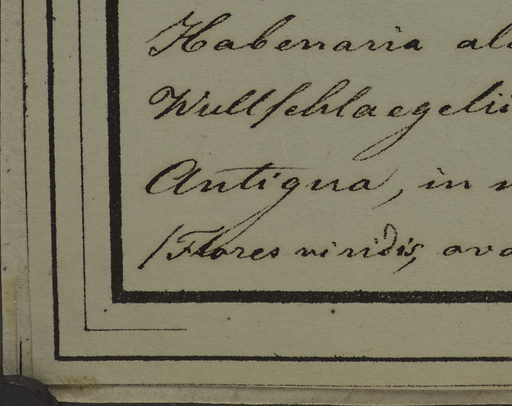 Habenaria ala
Wullschlaegelii
Antigua, in
/Flores viridis,